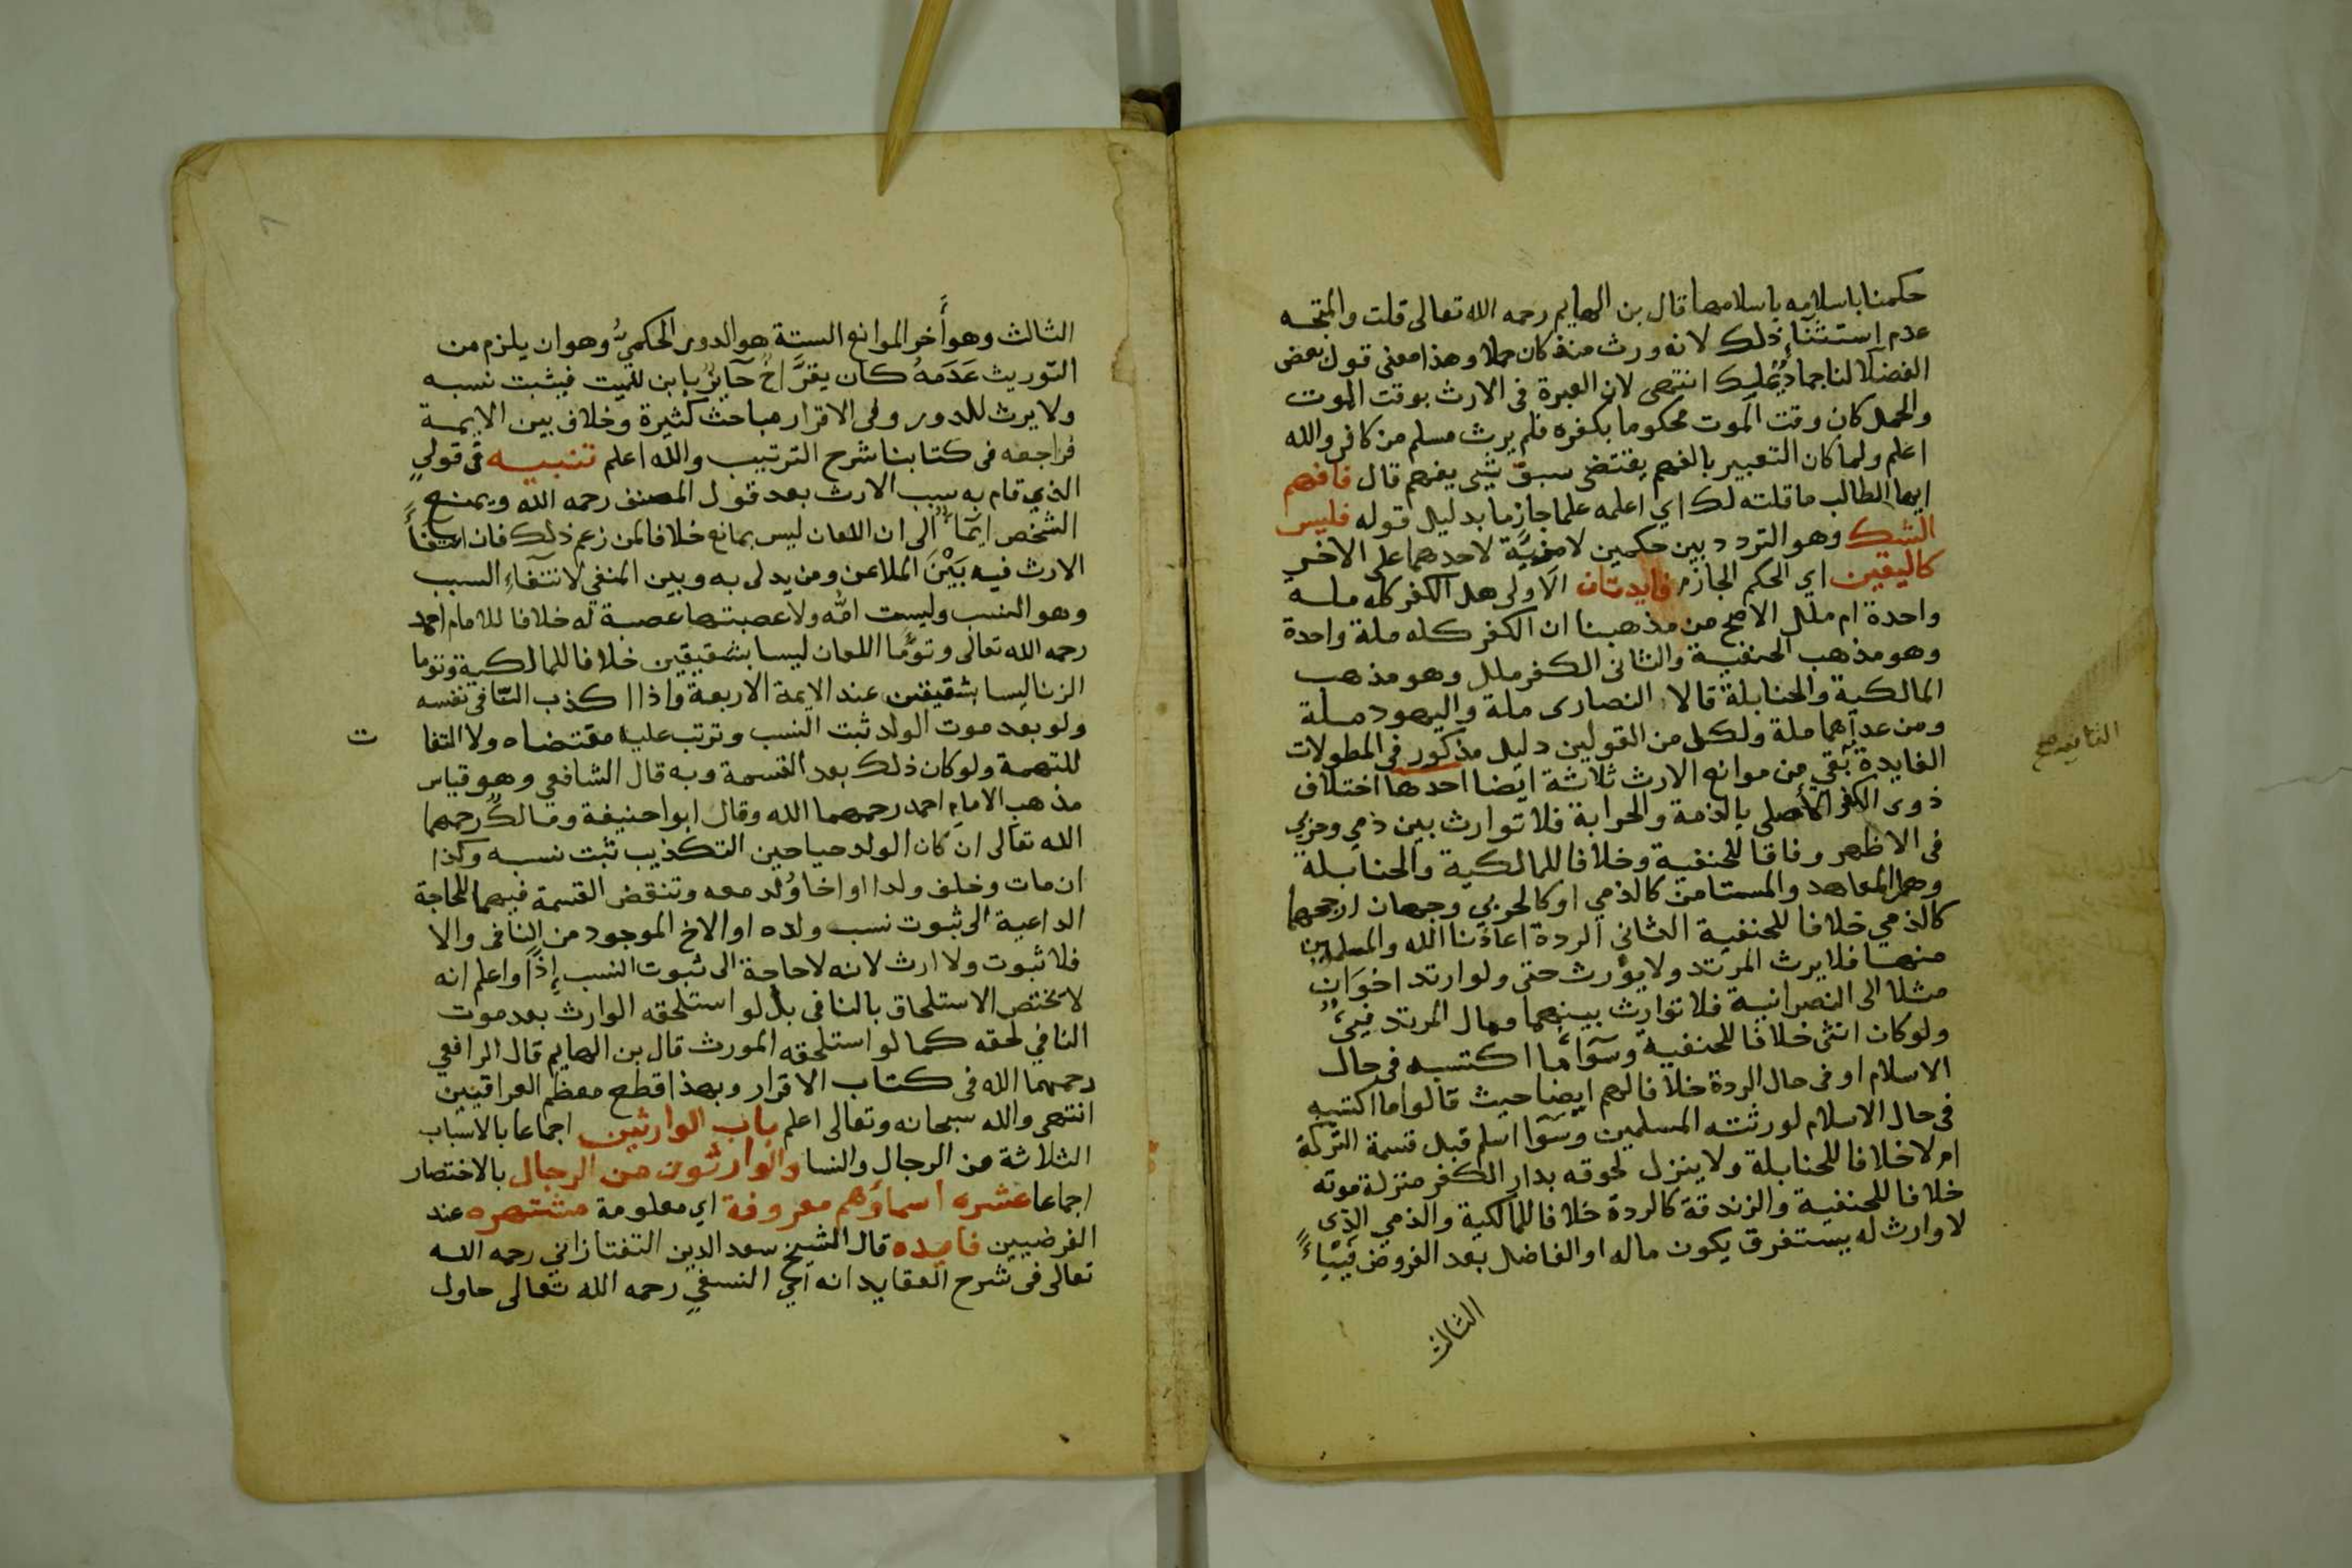 حكمنا باسلامه باسلامها قال بن الهايم رحمه الله تعالى قلت والمتجه
عدم استثناء ذلك لانه ورث منذ كان حملا وهذا معنى قول بعض
الفضلا لنا جماد يملك انتهى لان العبرة فى الارث بوقت الموت
والحمل كان وقت الموت محكوما بكفره فلم يرث مسلم من كافر والله
اعلم ولما كان التعبير بالفهم يقتضى سبق شيى يفهم قال فافهم
ايها الطالب ما قلته لك اي اعلمه علما جازما بدليل قوله فليس
الشك وهو التردد بين حكمين لا مزية لاحدهما على الاخر
كاليقين اي الحكم الجازم فايدتان الاولى هل الكفر كله ملة
واحدة ام ملل الاصح من مذهبنا ان الكفر كله ملة واحدة
وهو مذهب الحنفية والثانى الكفر ملل وهو مذهب
المالكية والحنابلة قالا النصارى ملة واليهود ملة
ومن عداهما ملة ولكل من القولين دليل مذكور فى المطولات
الفايدة بقي من موانع الارث ثلاثة ايضا احدها اختلاف
الثانية صح
ذوى الكفر الأصلى بالذمة والحرابة فلا توارث بين ذمي وحربي
فى الاظهر وفاقا للحنفية وخلافا للمالكية والحنابلة
وهل المعاهد والمستامن كالذمي او كالحربي وجهان ارجحهما
كالذمي خلافا للحنفية الثاني الردة اعاذنا الله والمسلمين
منها فلا يرث المرتد ولا يورث حتى ولو ارتد اخوان
مثلا الى النصرانية فلا توارث بينهما ومال المرتد فيئ
ولو كان انثى خلافا للحنفية وسوآ ما اكتسبه فى حال
الاسلام او فى حال الردة خلافا لهم ايضا حيث قالوا ما اكتسبه
فى حال الاسلام لورثته المسلمين وسوآ اسلم قبل قسمة التركة
ام لا خلافا للحنابلة ولا ينزل لحوقه بدار الكفر منزلة موته
خلافا للحنفية والزندقة كالردة خلافا للمالكية والذمي الذى
لا وارث له يستغرق يكون ماله او الفاضل بعد الفروض فيئا
الثالث
الثالث وهو أخر الموانع الستة هو الدور الحكميُّ وهو ان يلزم من
التوريث عَدَمهُ كان يقرَّ اخٌ حآيزٌ بابن للميت فيثبت نسبه
ولا يرث للدور وفى الاقرار مباحث كثيرة وخلاف بين الايمة
فراجعه فى كتابنا شرح الترتيب والله اعلم تنبيه فى قولي
الذي قام به سبب الارث بعد قول المصنف رحمه الله ويمنع
الشخص ايمآ الى ان اللعان ليس بمانع خلافا لمن زعم ذلك فان انتفآ
الارث فيه بَيْنَ الملاعن ومن يدلى به وبين المنفي لانتفآء السبب
وهو النسب وليست امّه ولا عصبتها عصبة له خلافا للامام احمد
رحمه الله تعالى وتوءَما اللعان ليسا بشقيقين خلافا للمالكية وتوما
الزنا ليسا بشقيقين عند الايمة الاربعة واذا اكذب النافى نفسه
ولو بعد موت الولد ثبت النسب وترتب عليه مقتضاه ولا التفا
ت
للتهمة ولو كان ذلك بعد القسمة وبه قال الشافعي وهو قياس
مذهب الامام احمد رحمهما الله وقال ابوا حنيفة ومالكٌ رحمهما
الله تعالى ان كان الولد حيا حين التكذيب ثبت نسبه وكذا
ان مات وخلف ولدا او اخا وُلد معه وتنقض القسمة فيهما للحاجة
الداعية الى ثبوت نسب ولده او الاخ الموجود من النافى والا
فلا ثبوت ولا ارث لانه لا حاجة الى ثبوت النسب إذًا واعلم انه
لا يختص الاستلحاق بالنافى بل لو استلحقه الوارث بعد موت
النافي لحقه كما لو استلحقه المورث قال بن الهايم قال الرافعي
رحمهما الله فى كتاب الاقرار وبهذا قطع معظم العراقيين
انتهى والله سبحانه وتعالى اعلم باب الوارثين اجماعا بالاسباب
الثلاثة من الرجال والنسا والوارثون من الرجال بالاختصار
اجماعا عشره اسماؤهم معروفة اي معلومة مشتهره عند
الفرضيين فايده قال الشيخ سعد الدين التفتازاني رحمه الله
تعالى فى شرح العقايد انه اي النسفي رحمه الله تعالى حاول